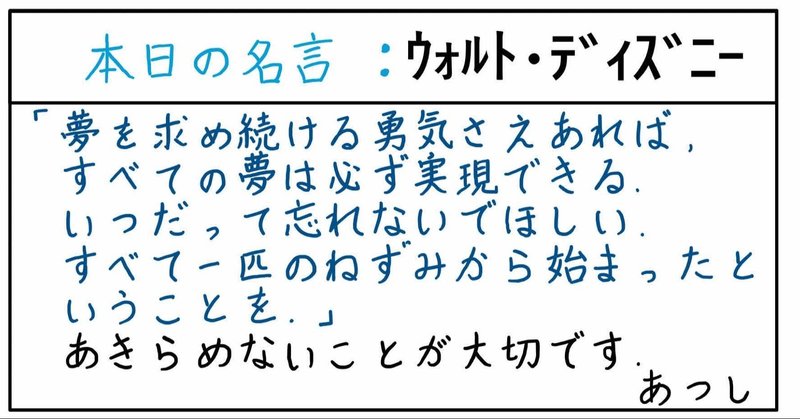 本日の名言 : ｳｫﾙﾄ・ﾃﾞｨｽﾞﾆｰ
「夢を求め続ける勇気さえあれば,
すべての夢は必ず実現できる.
いつだって忘れないでほしい.
すべて一匹のねずみから始まったと
いうことを.」
あきらめないことが大切です.
あつし